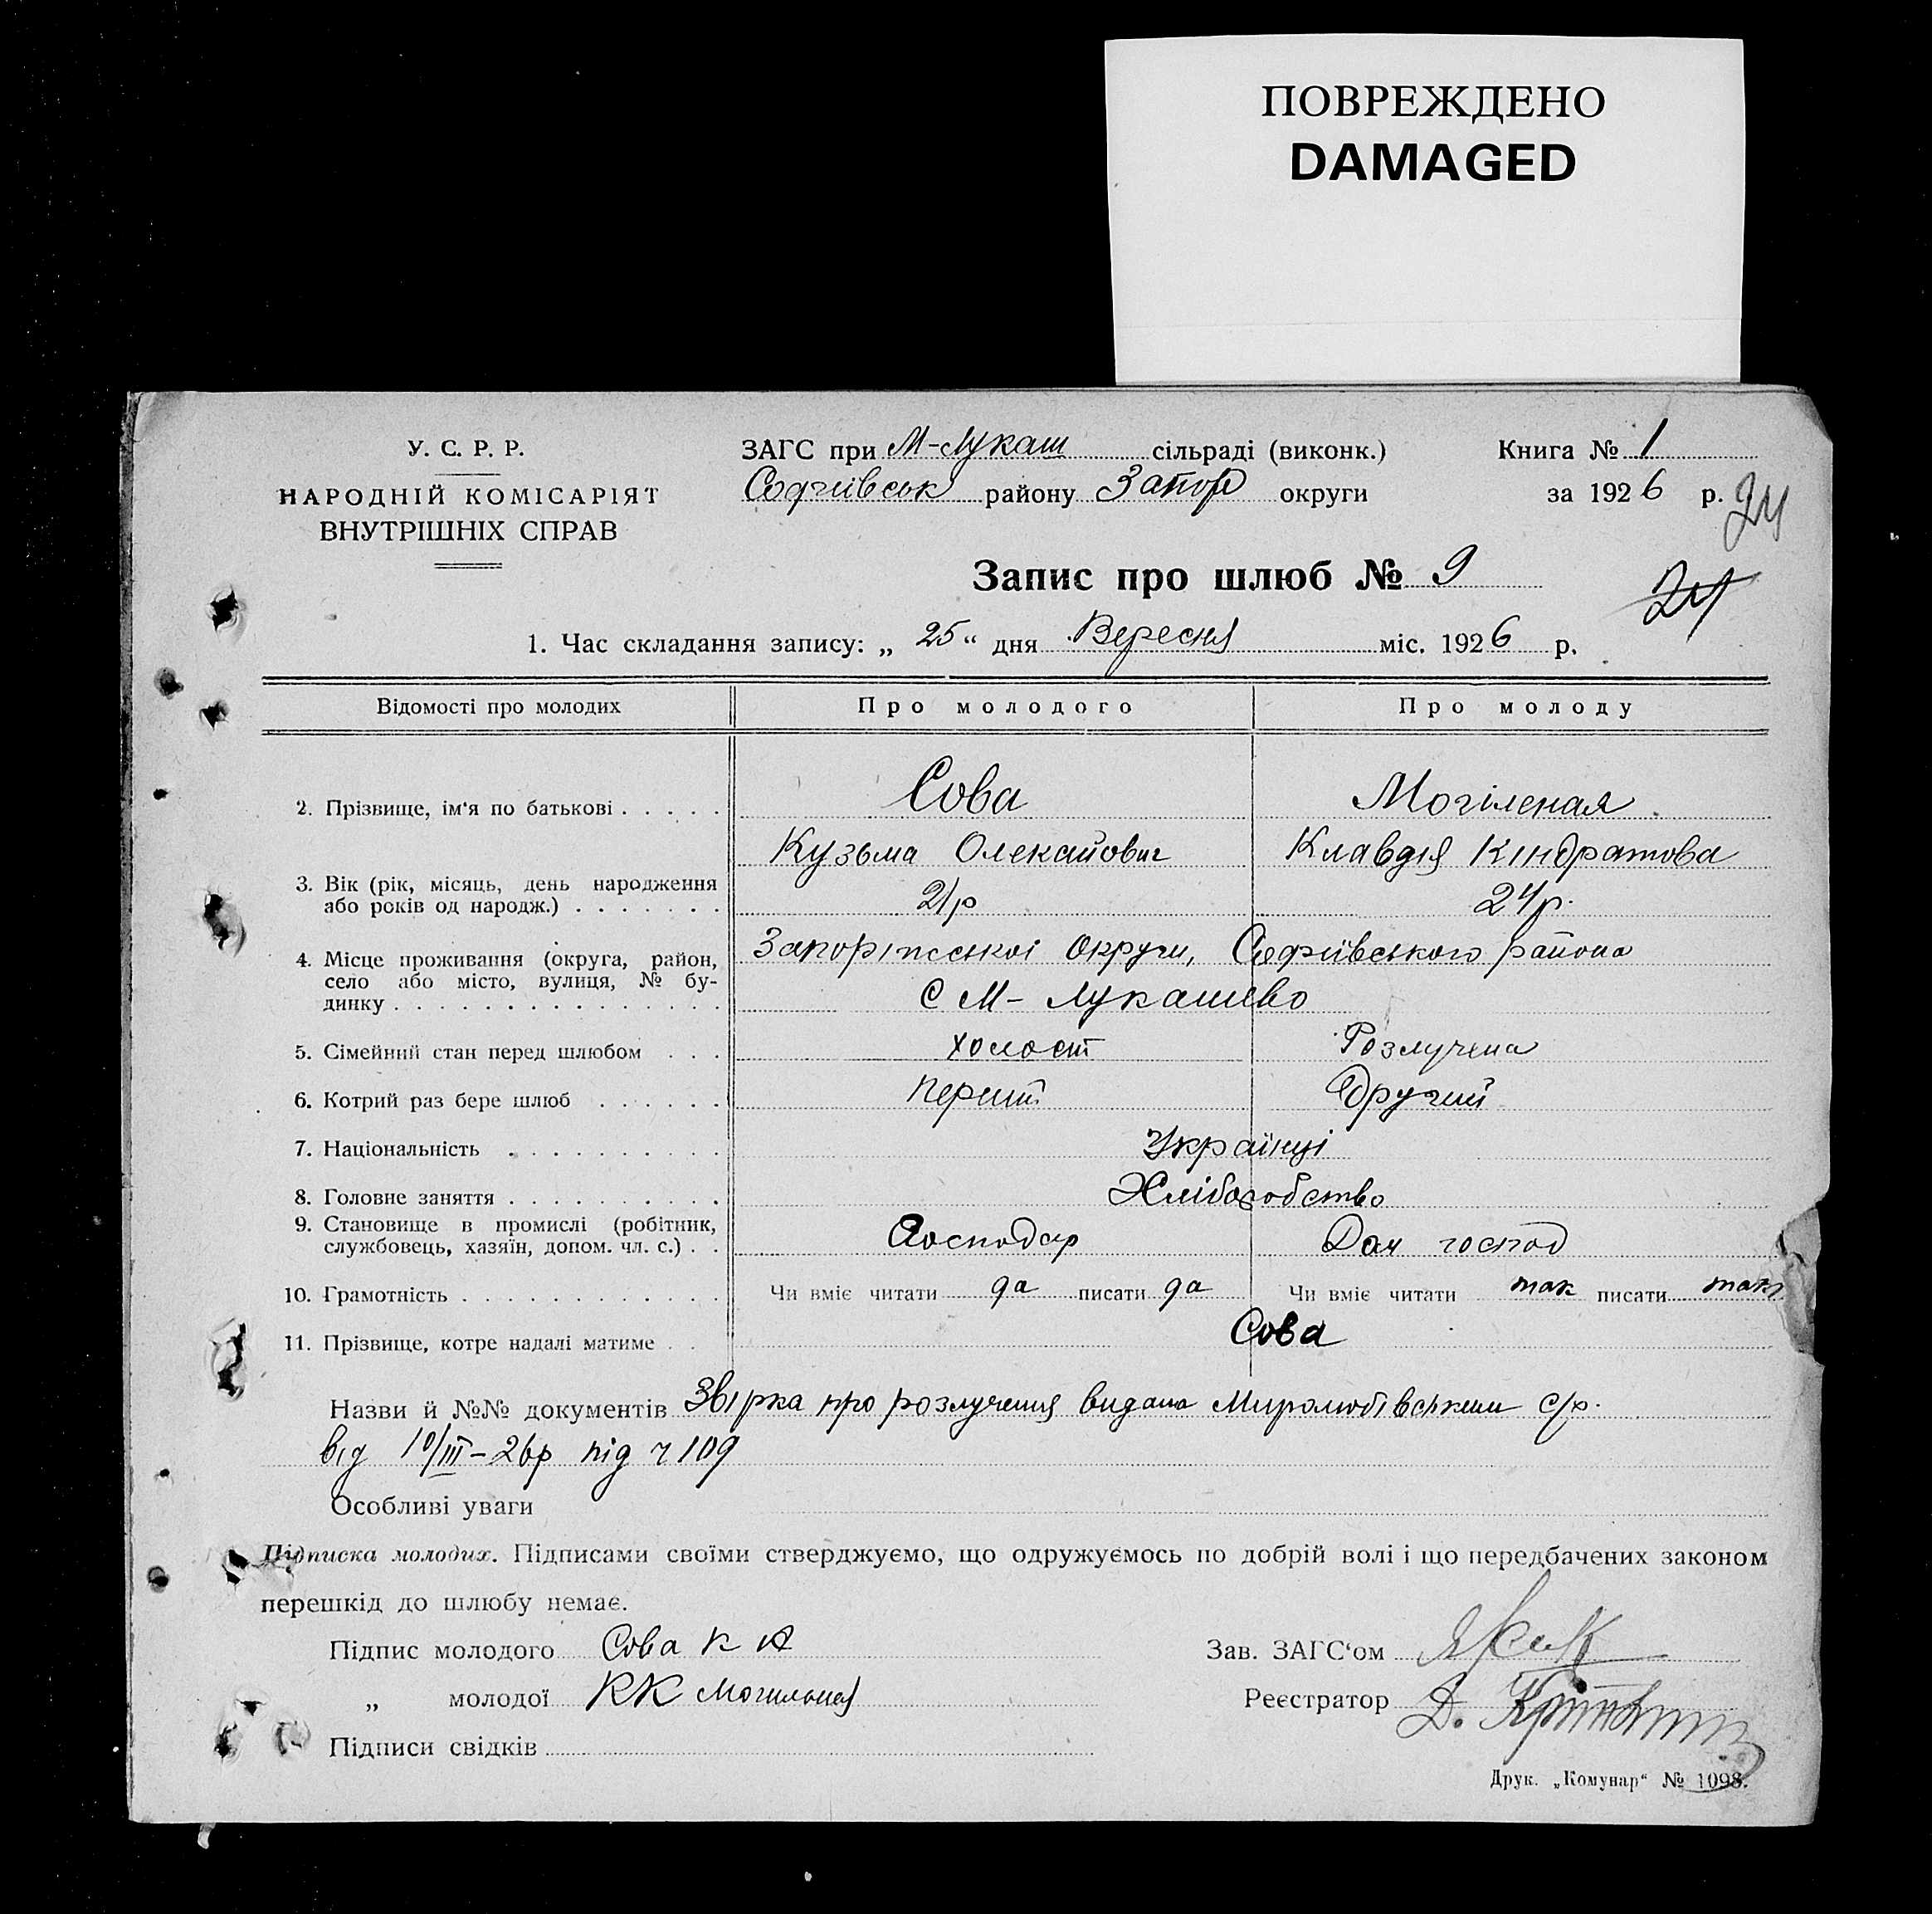 ПОВРЕЖДЕНО
DAMAGED
У. С. Р. Р.
НАРОДНІЙ КОМІСАРІЯТ
ВНУТРІШНІХ СПРАВ
ЗАГС при М-Лукаш сільраді (виконк.)
Софиівськ району Запор округи
Книга № 1
за 1926 р.
24
Запис про шлюб № 9
24
1. Час складання запису: „ 25 “ дня Вересня міс. 1926 р.
Відомості про молодих Про молодого Про молоду
2. Прізвище, ім'я по батькові . . . . . Сова Могіленая
Кузьма Клавдія Кіндратова
3. Вік (рік, місяць, день народження
або років од народж.) . . . . . . . 21р 24р.
4. Місце проживання (округа, район, Запоріжської Округи, Софиівського района
село або місто, вулиця, № бу-
динку . . . . . . . . . . . . . . . с М-Лукашево
5. Сімейний стан перед шлюбом . . . холост Розлучена
6. Котрий раз бере шлюб . . . . . . Перший Другий
7. Національність . . . . . . . . . . Українці
8. Головне заняття . . . . . . . . . . Хліборобство
9. Становище в промислі (робітник,
службовець, хазяїн, допом. чл. с.) . . Господар Доч господ
10. Грамотність . . . . . . . . . . . . Чи вміє читати да писати да Чи вміє читати так писати так
11. Прізвище, котре надалі матиме . . Сова
Назви й №№ документів про розлучення видана Миролюбівським с/р.
від 10/III-26р під ч 109
Особливі уваги
Підписка молодих. Підписами своїми стверджуємо, що одружуємось по добрій волі і що передбачених законом
перешкід до шлюбу немає.
Підпис молодого Сова К А
„ молодої КК Могильная
Підписи свідків
Зав. ЗАГС‘ом
Реєстратор Д.
Друк. „Комунар“ № 1098.